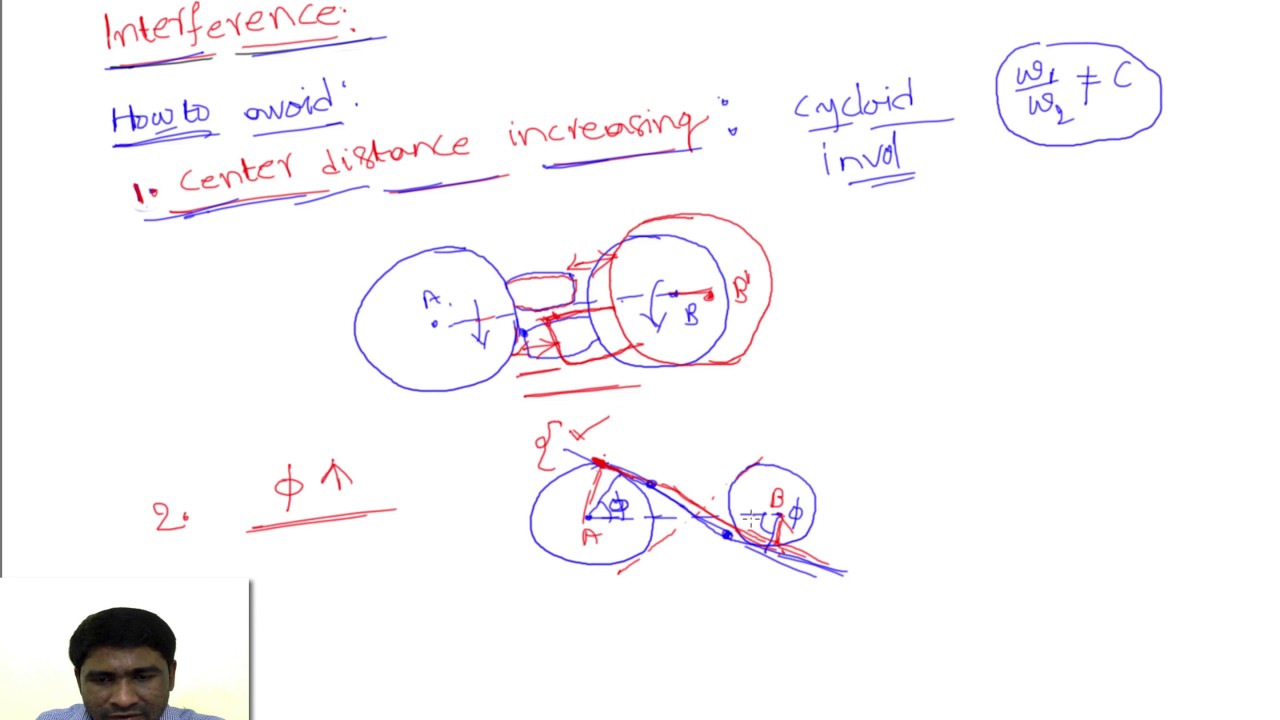 Interference:
How to avoid:
1. Center distance increasing:
cycloid
invol
ω1/ω2 ≠ C
A.
B
B'
2. φ ↑
φ
A
B φ